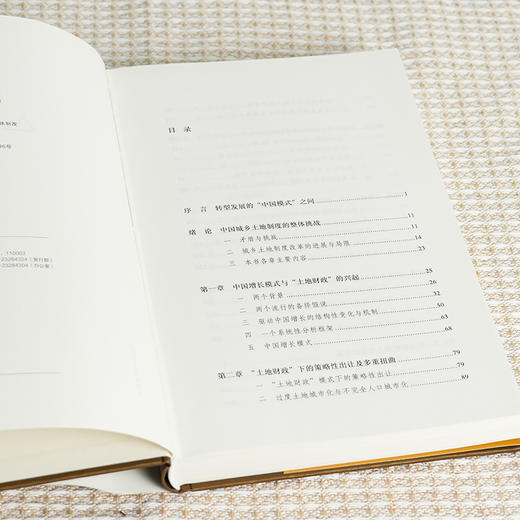 体制改
96号
110003
-23284324（发行部）
-23284304（办公室）
目录
序 言 转型发展的“中国模式”之问 1
绪 论 中国城乡土地制度的整体挑战 11
一 矛盾与挑战 11
二 城乡土地制度改革的进展与局限 14
三 本书各章主要内容 23
第一章 中国增长模式与“土地财政”的兴起 25
一 两个背景 26
二 两个流行的备择假说 32
三 驱动中国增长的结构性变化与机制 50
四 一个系统性分析框架 63
五 中国增长模式 68
第二章 “土地财政”下的策略性出让及多重扭曲 79
一 “土地财政”模式下的策略性出让 79
二 过度土地城市化与不完全人口城市化 89